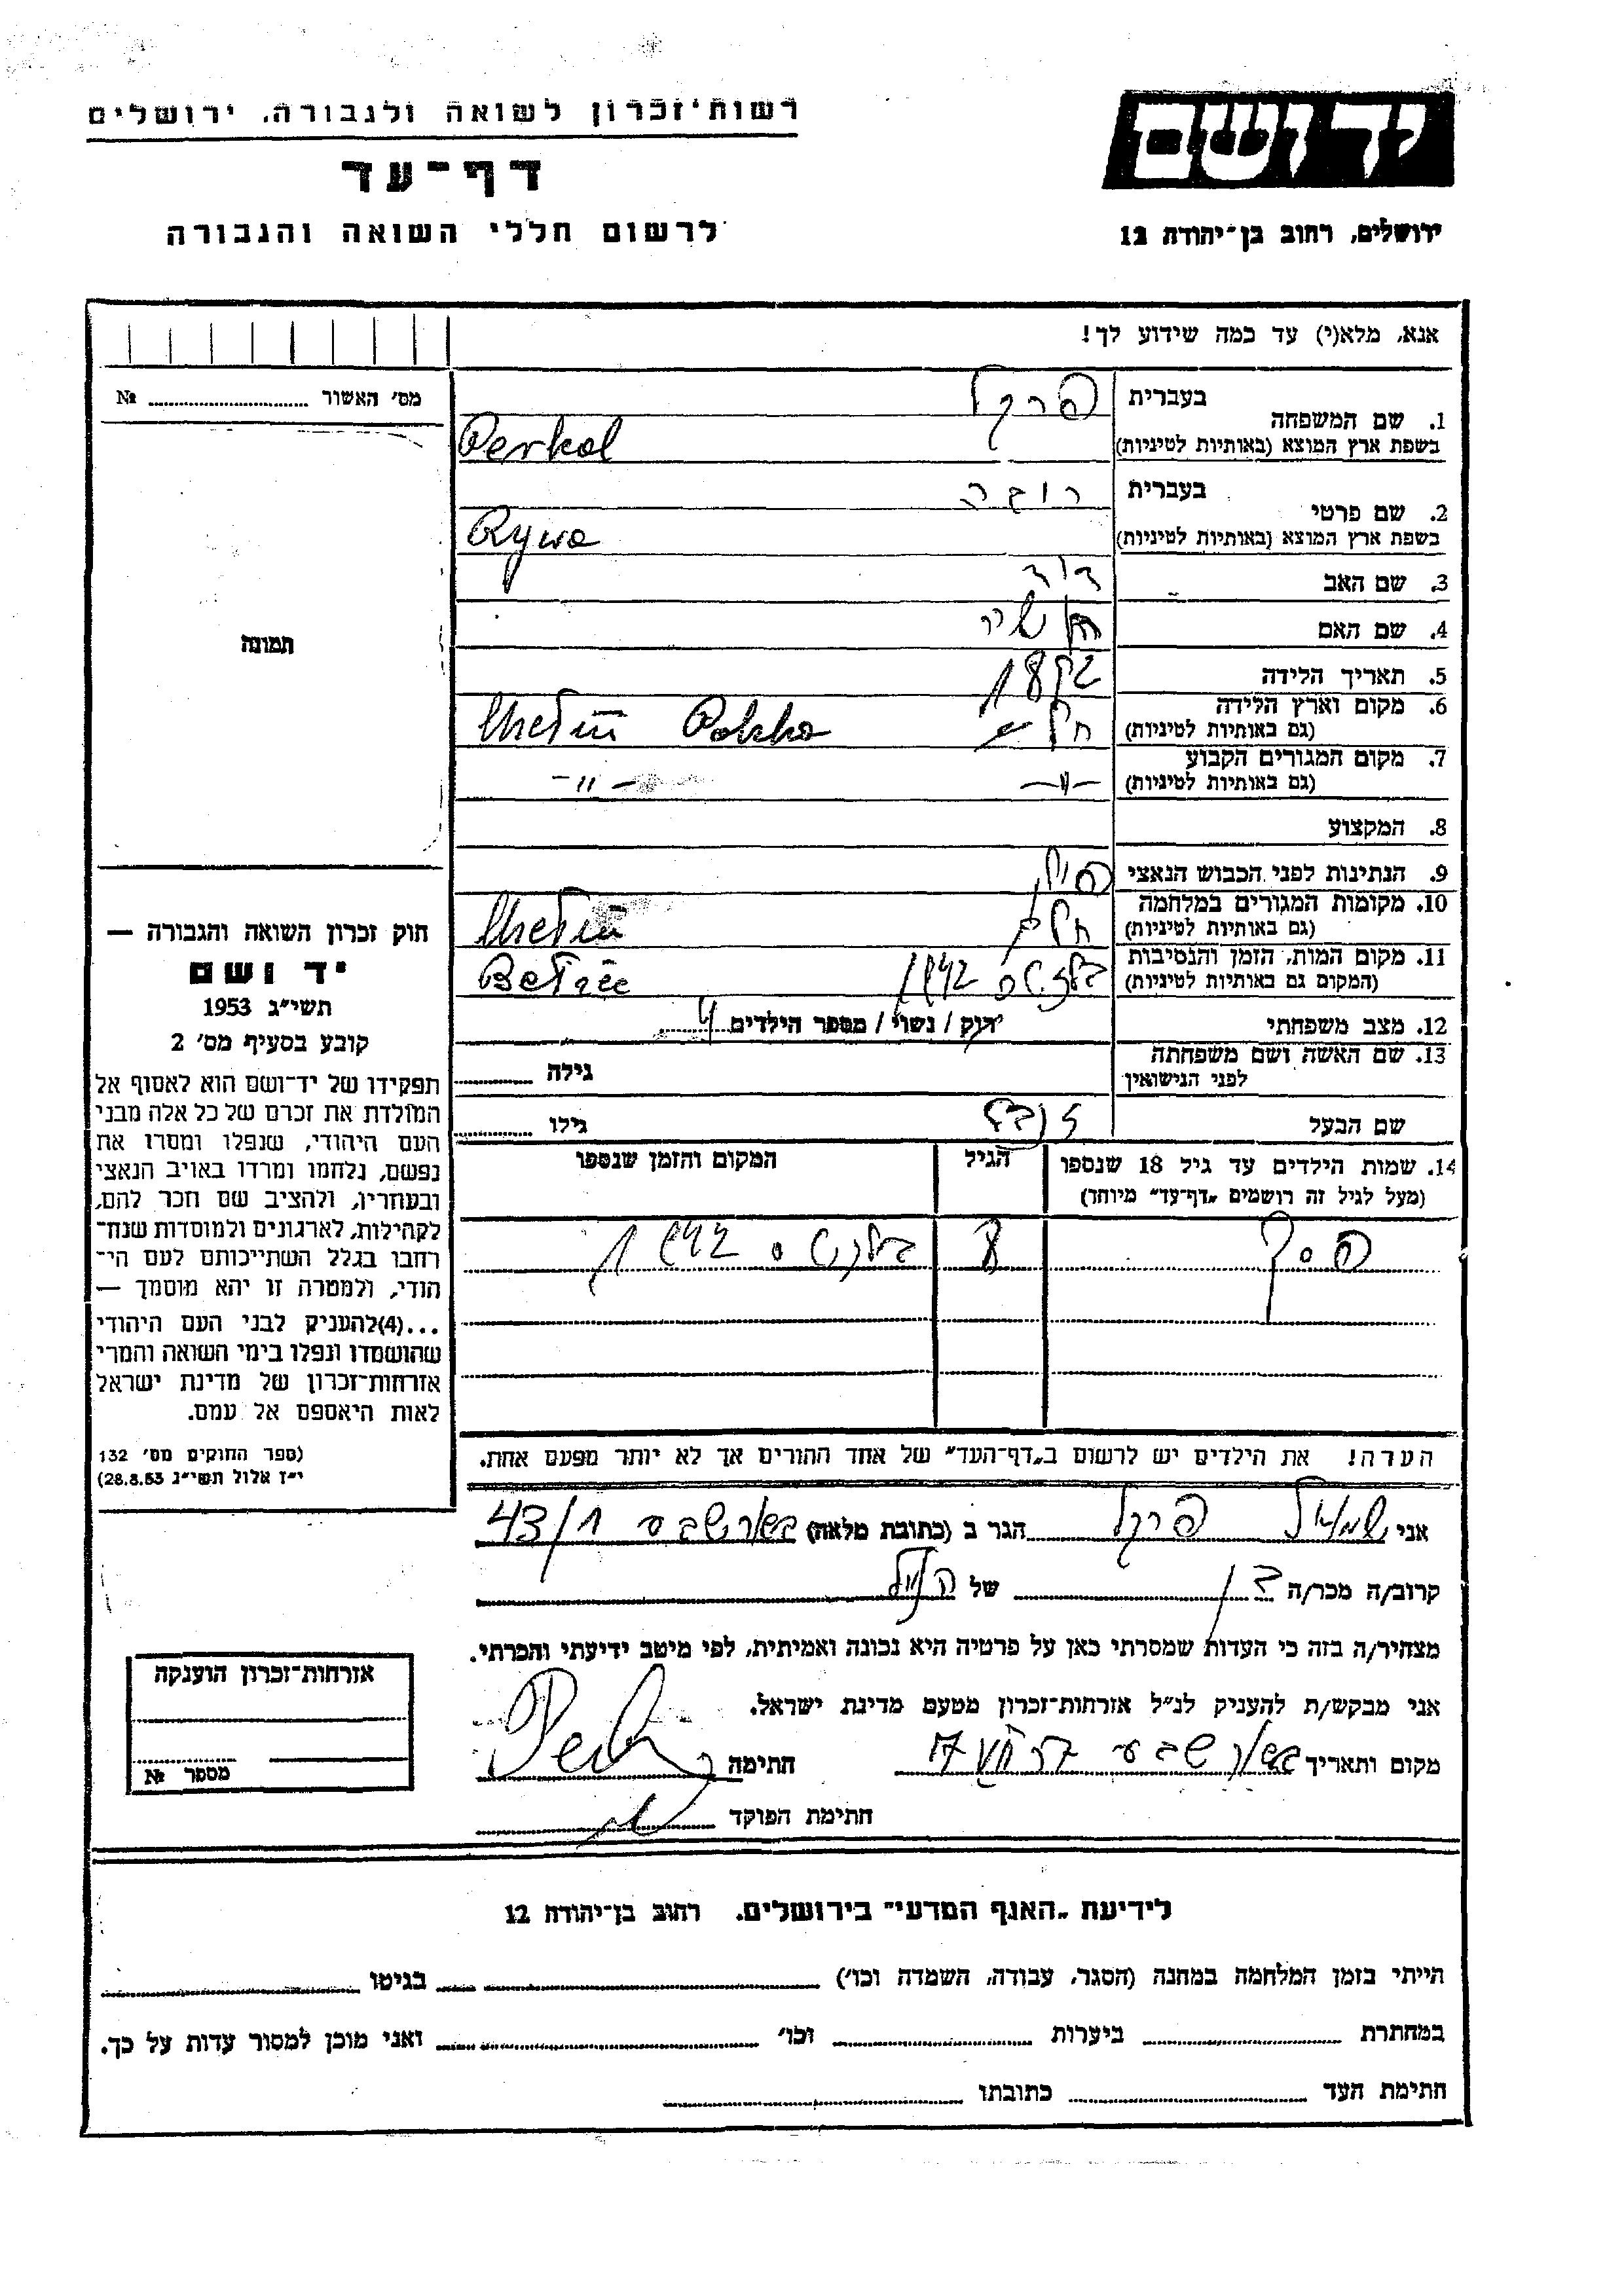 רשות־זכרון לשואה ולגבורה, ירושלים
דף־עד
לרשום חללי השואה והגבורה
יד ושם
ירושלים, רחוב בן־יהודה 12
אנא, מלא(י) עד כמה שידוע לך!
מס' האשור № ..........
1. שם המשפחה בעברית פרקל
בשפת ארץ המוצא (באותיות לטיניות) Perkal
2. שם פרטי בעברית
בשפת ארץ המוצא (באותיות לטיניות) Rywa
3. שם האב דוד
4. שם האם
5. תאריך הלידה
6. מקום וארץ הלידה
(גם באותיות לטיניות) Chełm Polska
7. מקום המגורים הקבוע
(גם באותיות לטיניות) -"- -"-
8. המקצוע
9. הנתינות לפני הכבוש הנאצי
10. מקומות המגורים במלחמה
(גם באותיות לטיניות) חלם Chełm
11. מקום המות, הזמן והנסיבות
(המקום גם באותיות לטיניות) 1942
12. מצב משפחתי רוק / נשוי / מספר הילדים 4
13. שם האשה ושם משפחתה
לפני הנישואין גילה
שם הבעל גילו
14. שמות הילדים עד גיל 18 שנספו
(מעל לגיל זה רושמים "דף־עד" מיוחד)
הגיל
המקום והזמן שנספו
8 1942
הערה! את הילדים יש לרשום ב"דף־העד" של אחד ההורים אך לא יותר מפעם אחת.
תמונה
חוק זכרון השואה והגבורה —
יד ושם
תשי"ג 1953
קובע בסעיף מס' 2
תפקידו של יד־ושם הוא לאסוף אל
המולדת את זכרם של כל אלה מבני
העם היהודי, שנפלו ומסרו את
נפשם, נלחמו ומרדו באויב הנאצי
ובעוזריו, ולהציב שם וזכר להם,
לקהילות, לארגונים ולמוסדות שנח־
רבו בגלל השתייכותם לעם הי־
הודי, ולמטרה זו יהא מוסמך —
...(4) להעניק לבני העם היהודי
שהושמדו ונפלו בימי השואה והמרי
אזרחות־זכרון של מדינת ישראל
לאות היאספם אל עמם.
(ספר החוקים מס' 132
י"ז אלול תשי"ג 28.8.53)
אני שמואל פרקל הגר ב (כתובת מלאה) באר שבע 43/1
קרוב/ה מכר/ה בן של הנ"ל
מצהיר/ה בזה כי העדות שמסרתי כאן על פרטיה היא נכונה ואמיתית, לפי מיטב ידיעתי והכרתי.
אני מבקש/ת להעניק לנ"ל אזרחות־זכרון מטעם מדינת ישראל.
מקום ותאריך באר שבע חתימה
חתימת הפוקד
אזרחות־זכרון הוענקה
מספר №
לידיעת "האגף המדעי" בירושלים, רחוב בן־יהודה 12
הייתי בזמן המלחמה במחנה (הסגר, עבודה, השמדה וכו') בגיטו
במחתרת ביערות וכו' ואני מוכן למסור עדות על כך.
חתימת העד כתובתו